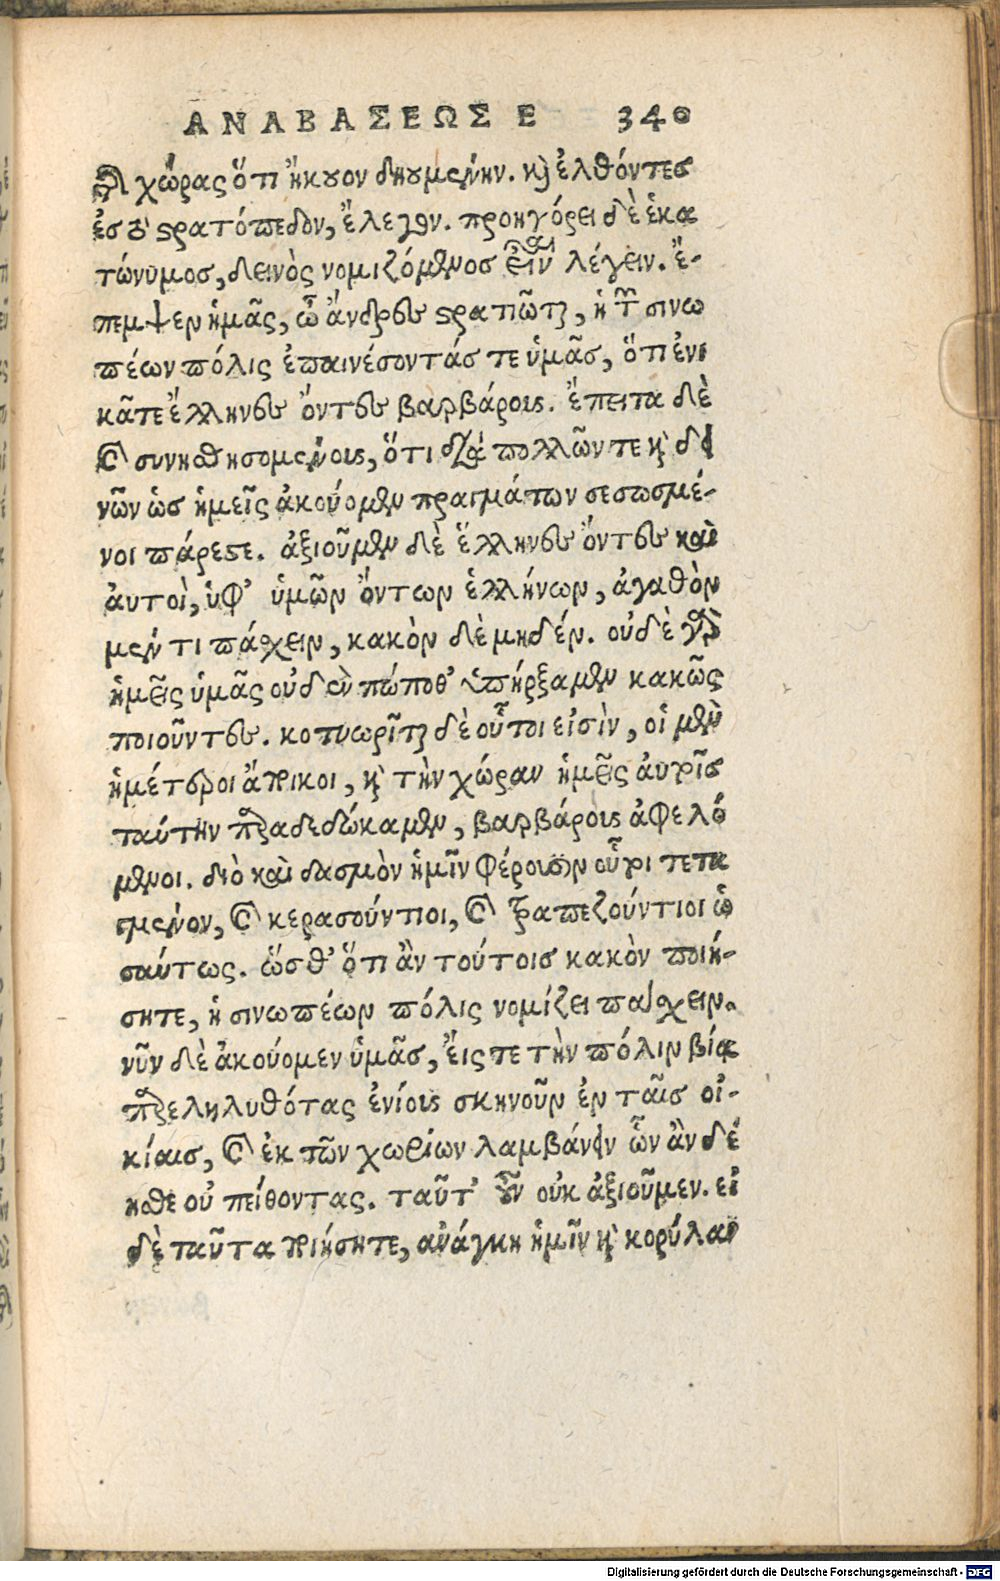 ΑΝΑΒΑΣΕΩΣ Ε 340
τῆς χώρας ὅτι ἤκουον δηουμένην. καὶ ἐλθόντες
ἐς τὸ στρατόπεδον, ἔλεγον. προηγόρει δὲ ἑκα
τώνυμος, δεινὸς νομιζόμενος εἶναι λέγειν. ἔ-
πεμψεν ἡμᾶς, ὦ ἄνδρες στρατιῶται, ἡ τῶν σινω
πέων πόλις ἐπαινέσοντάς τε ὑμᾶς, ὅτι ἐνι
κᾶτε ἕλληνες ὄντες βαρβάρους. ἔπειτα δὲ
καὶ συνησθησομένους, ὅτι διὰ πολλῶν τε καὶ δει
νῶν ὡς ἡμεῖς ἀκούομεν πραγμάτων σεσωσμέ-
νοι πάρεστε. ἀξιοῦμεν δὲ ἕλληνες ὄντες καὶ
ἀυτοὶ, ὑφ' ὑμῶν ὄντων ἑλλήνων, ἀγαθὸν
μέν τι πάσχειν, κακὸν δὲ μηδέν. οὐδὲ γὰρ
ἡμεῖς ὑμᾶς οὐδὲν πώποθ' ὑπήρξαμεν κακῶς
ποιοῦντες. κοτυωρῖται δὲ οὗτοι εἰσὶν, οἱ μὲν
ἡμέτεροι ἄποικοι, καὶ τὴν χώραν ἡμεῖς αὐτοῖς
ταύτην παραδεδώκαμεν, βαρβάρους ἀφελό
μενοι. διὸ καὶ δασμὸν ἡμῖν φέρουσιν οὗτοι τετα
γμένον, καὶ κερασούντιοι, καὶ τραπεζούντιοι ὡ
σαύτως. ὥσθ' ὅτι ἂν τούτοις κακὸν ποιή-
σητε, ἡ σινωπέων πόλις νομίζει πάσχειν.
νῦν δὲ ἀκούομεν ὑμᾶς, ἔις τε τὴν πόλιν βίᾳ
παρεληλυθότας ἐνίους σκηνοῦν ἐν ταῖς οἰ-
κίαις, καὶ ἐκ τῶν χωρίων λαμβάνειν ὧν ἂν δέ
ησθε οὐ πείθοντας. ταῦτ' οὖν οὐκ ἀξιοῦμεν. εἰ
δὲ ταῦτα ποιήσητε, ανάγκη ἡμῖν καὶ κορύλαν
Digitalisierung gefördert durch die Deutsche Forschungsgemeinschaft - DFG